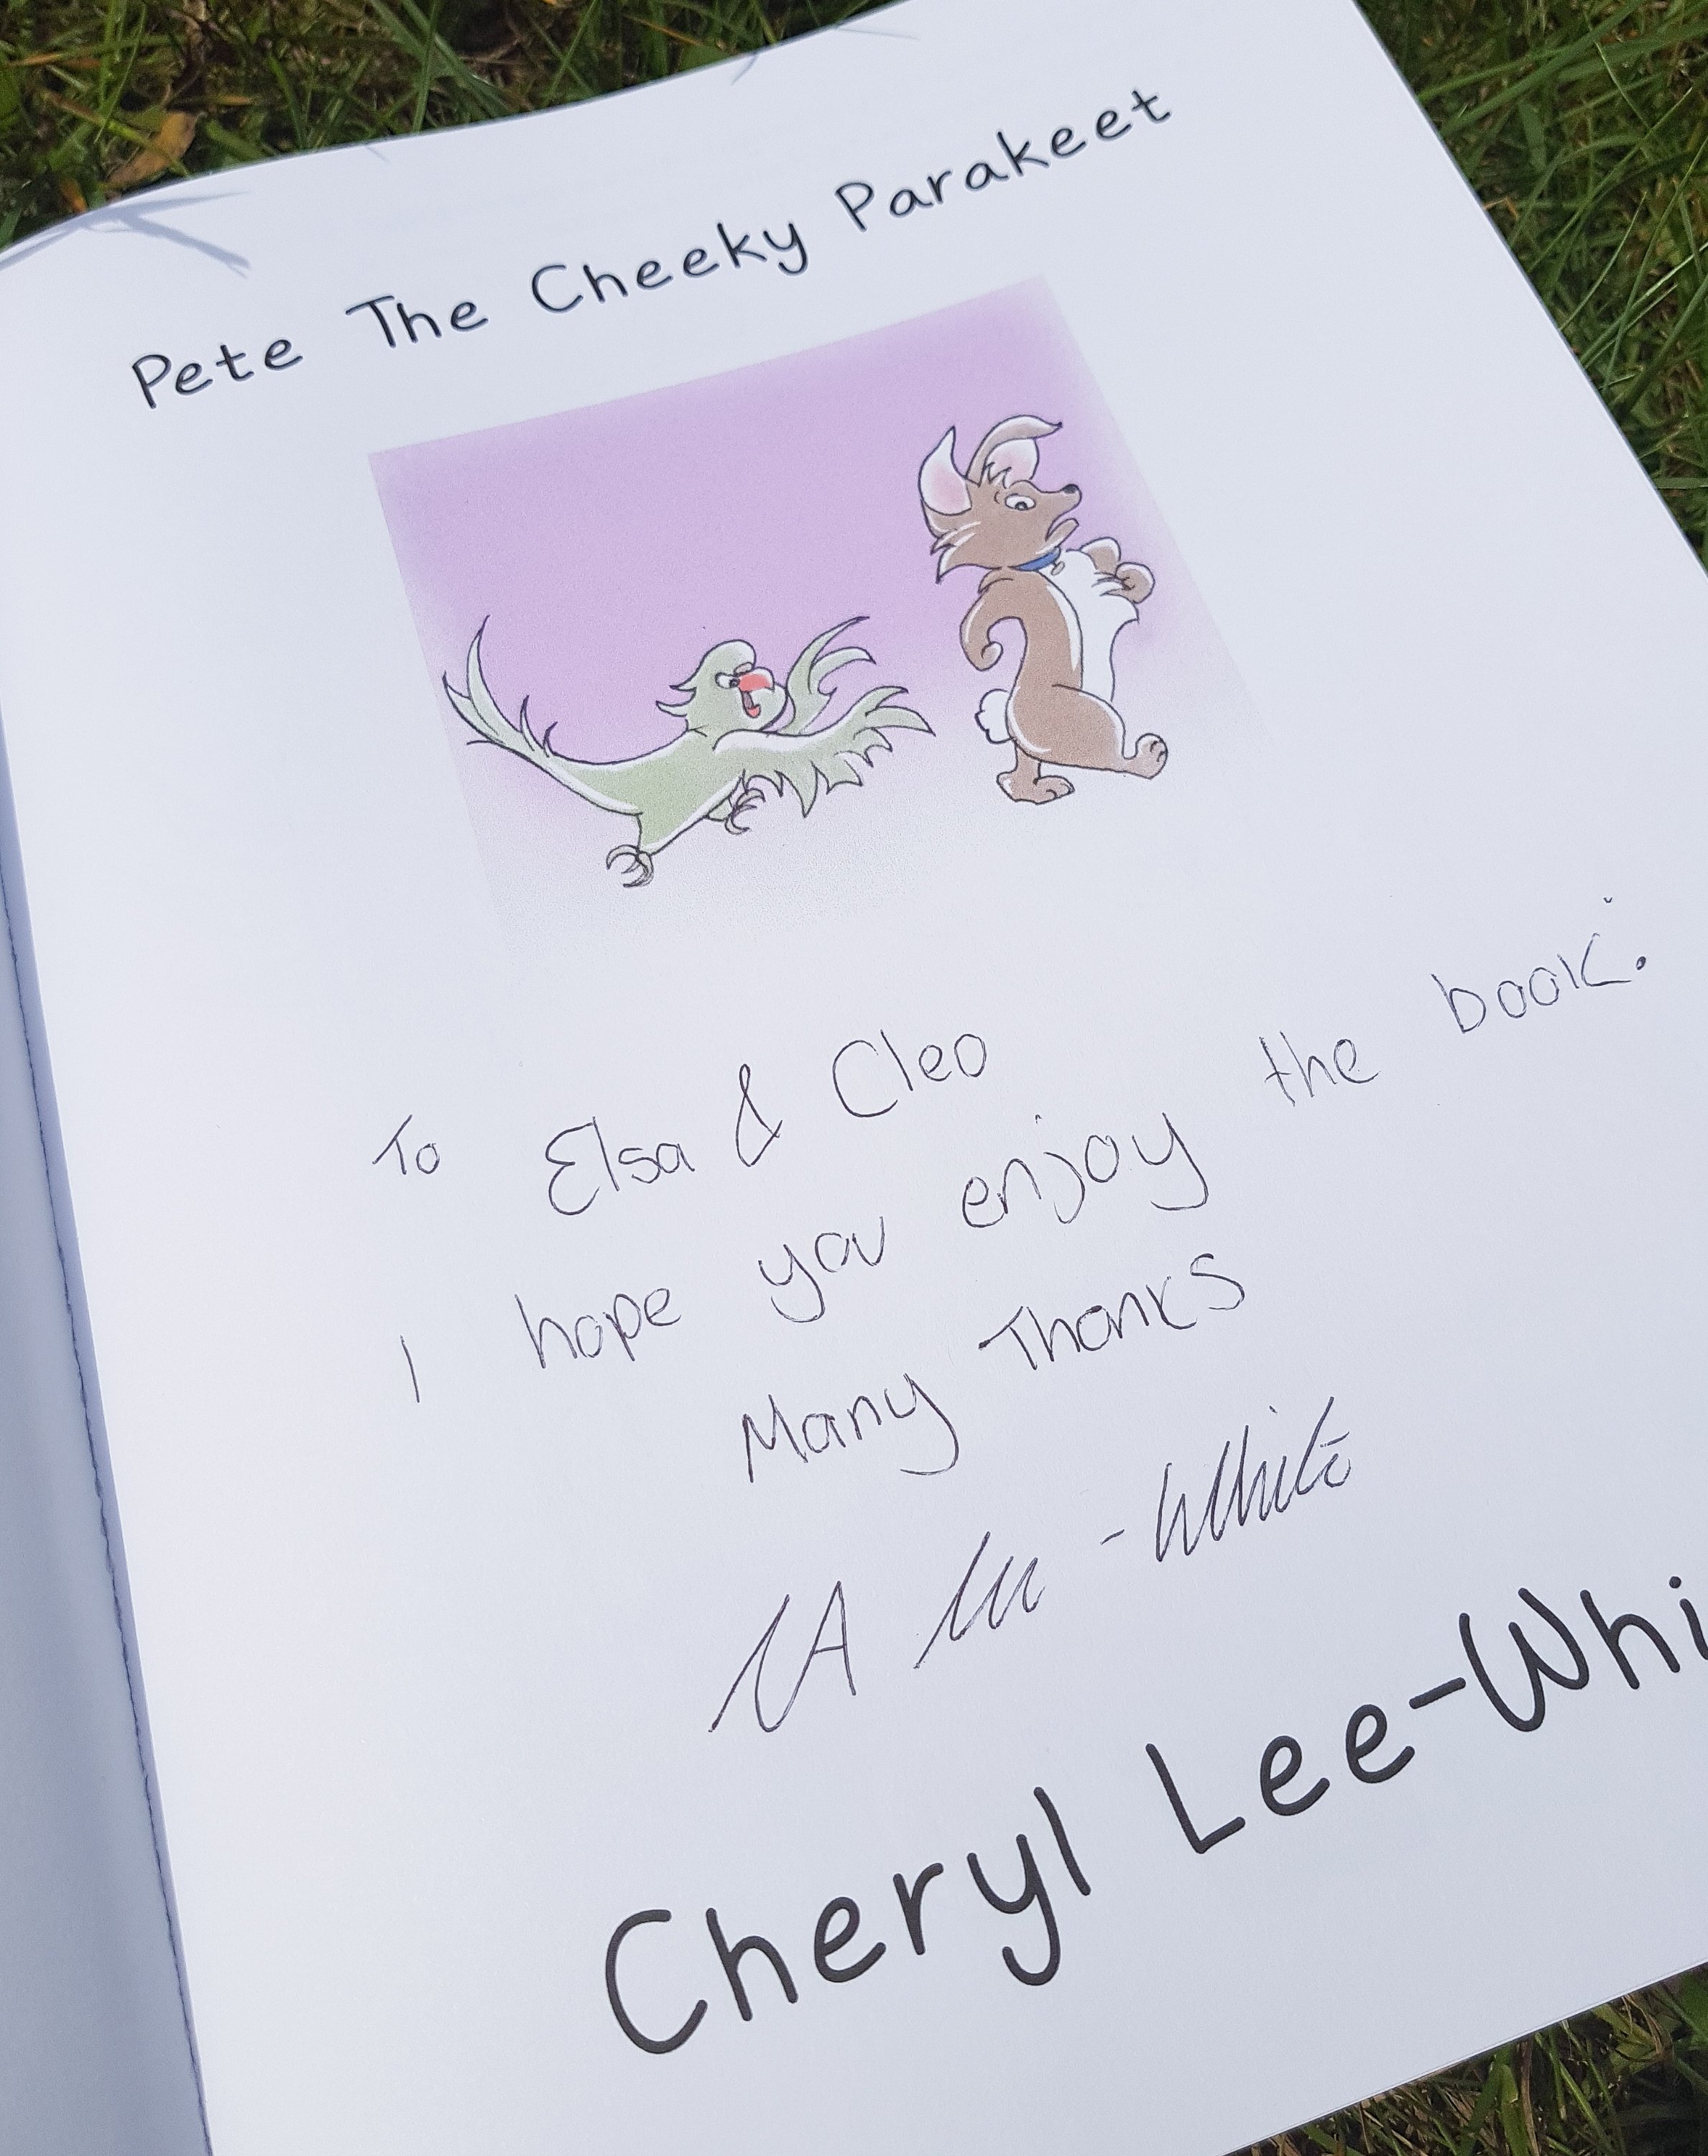 Pete The Cheeky Parakeet
To Elsa & Cleo
I hope you enjoy the book.
Many Thanks
Lee-White
Cheryl Lee-Whi